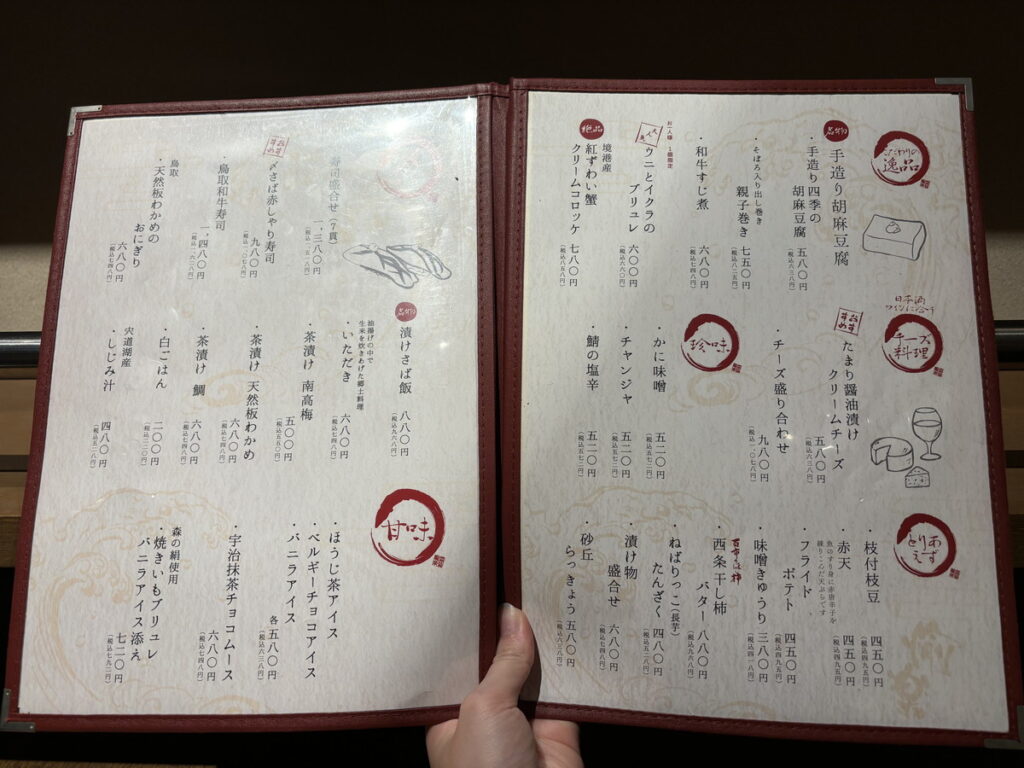 こだわりの
逸品
名物
手造り胡麻豆腐
・手造り四季の
胡麻豆腐
五八〇円
(税込六三八円)
・そぼろ入り出し巻き
親子巻き
七五〇円
(税込八二五円)
・和牛すじ煮
六八〇円
(税込七四八円)
お一人様一個限定
大人気
・ウニとイクラの
ブリュレ
六〇〇円
(税込六六〇円)
絶品
境港産
・紅ずわい蟹
クリームコロッケ
七八〇円
(税込八五八円)
日本酒
ワインに合う
チーズ
料理
おすすめ
・たまり醤油漬け
クリームチーズ
五八〇円
(税込六三八円)
・チーズ盛り合わせ
九八〇円
(税込一、〇七八円)
珍味
・かに味噌
五二〇円
(税込五七二円)
・チャンジャ
五二〇円
(税込五七二円)
・鯖の塩辛
五二〇円
(税込五七二円)
とりあ
えず
・枝付枝豆
四五〇円
(税込四九五円)
・赤天
魚のすり身に赤唐辛子を
練りこんだ天ぷらです
四五〇円
(税込四九五円)
・フライド
ポテト
四五〇円
(税込四九五円)
・味噌きゅうり
三八〇円
(税込四一八円)
・西条干し柿
バター
八八〇円
(税込九六八円)
・ねばりっこ(長芋)
たんざく
四八〇円
(税込五二八円)
・漬け物
盛合せ
六八〇円
(税込七四八円)
・砂丘
らっきょう
五八〇円
(税込六三八円)
寿司盛合せ(7貫)
一、三八〇円
(税込一、五一八円)
おすすめ
・〆さば赤しゃり寿司
九八〇円
(税込一、〇七八円)
・鳥取和牛寿司
一、四八〇円
(税込一、六二八円)
鳥取
・天然板わかめの
おにぎり
六八〇円
(税込七四八円)
名物
漬けさば飯
八八〇円
(税込九六八円)
油揚げの中で
生米を炊きあげた郷土料理
・いただき
六八〇円
(税込七四八円)
・茶漬け 南高梅
五〇〇円
(税込五五〇円)
・茶漬け 天然板わかめ
六八〇円
(税込七四八円)
・茶漬け 鯛
六八〇円
(税込七四八円)
・白ごはん
二〇〇円
(税込二二〇円)
宍道湖産
・しじみ汁
四八〇円
(税込五二八円)
甘味
・ほうじ茶アイス
・ベルギーチョコアイス
・バニラアイス
各五八〇円
(税込六三八円)
・宇治抹茶チョコムース
六八〇円
(税込七四八円)
森の絹使用
・焼きいもブリュレ
バニラアイス添え
七二〇円
(税込七九二円)